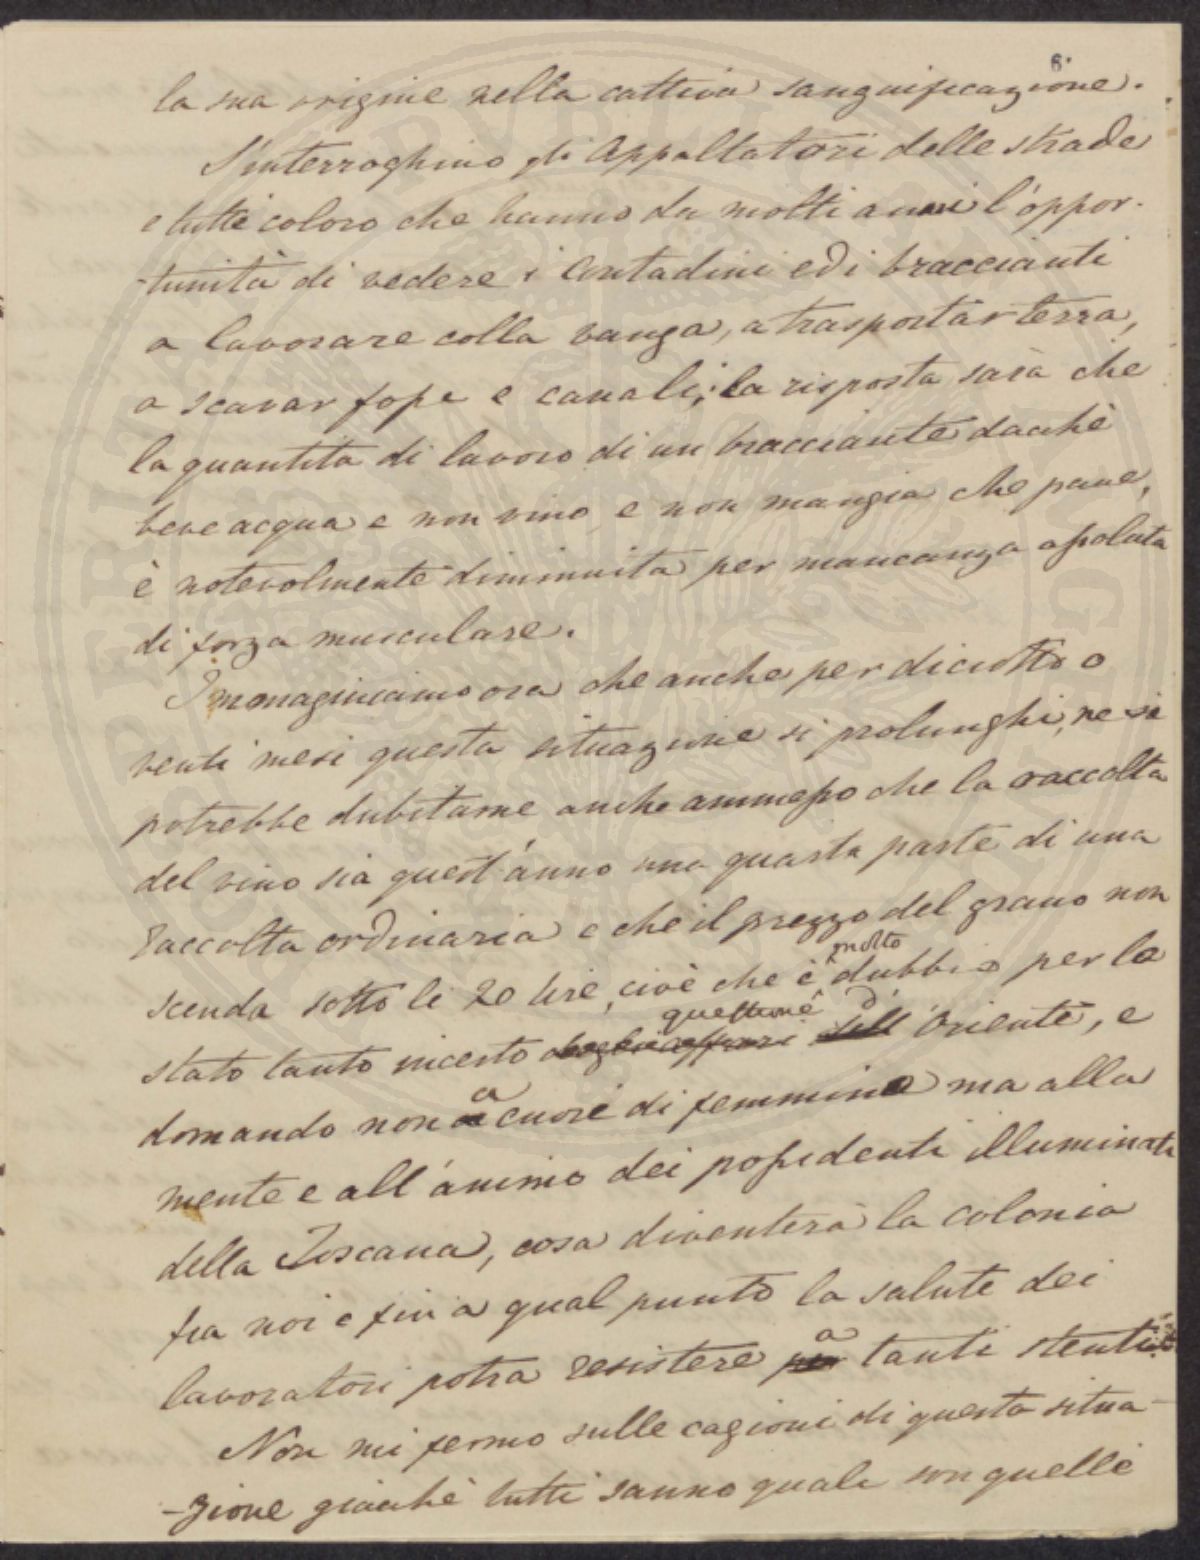 6.
la sua origine nella cattiva sanguificazione.
S'interroghino gli Appaltatori delle strade
e tutti coloro che hanno da molti anni l'oppor-
-tunità di vedere i Contadini ed i braccianti
a lavorare colla vanga, a trasportar terra,
a scavar fosse e canali; la risposta sarà che
la quantità di lavoro di un bracciante dacchè
beve acqua e non vino e non mangia che pane,
è notevolmente diminuita per mancanza assoluta
di forza musculare.
Immaginiamo ora che anche per diciotto o
venti mesi questa situazione si prolunghi, ne si
potrebbe dubitarne anche ammesso che la raccolta
del vino sia quest'anno una quarta parte di una
raccolta ordinaria e che il prezzo del grano non
scenda sotto le 20 lire, cioè che è molto dubbio per lo
stato tanto incerto questione d'Oriente, e
domando non a cuore di femmina ma alla
mente e all'animo dei possidenti illuminati
della Toscana, cosa diventerà la colonia
fra noi e fin a qual punto la salute dei
lavoratori potra resistere a tanti stenti
Non mi fermo sulle cagioni di questa situa-
-zione giacchè tutti sanno quale son quelle